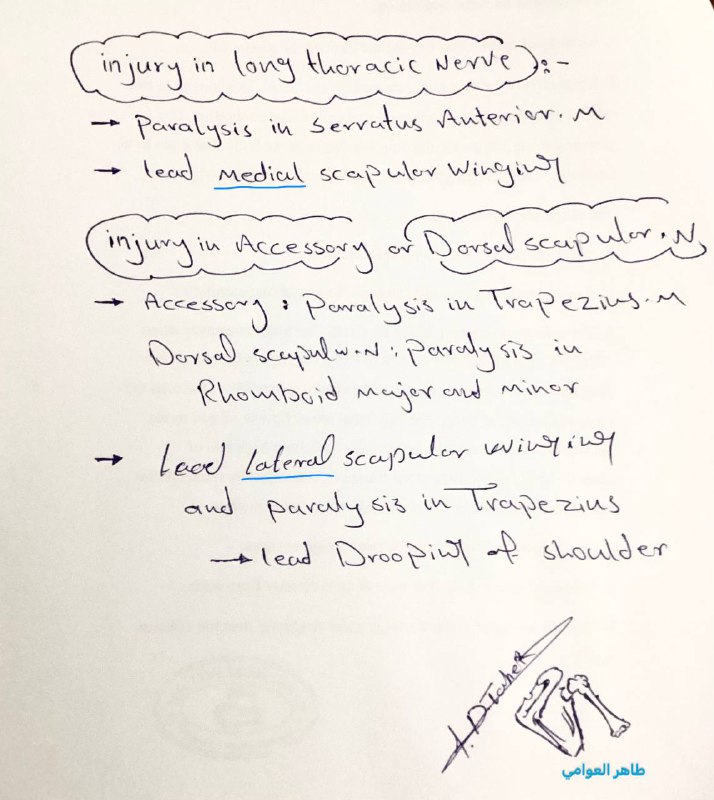 injury in long thoracic Nerve :-
→ Paralysis in Serratus Anterior. M
→ lead Medial scapular Winging
injury in Accessory or Dorsal scapular. N
→ Accessory : Paralysis in Trapezius. M
Dorsal scapular. N : Paralysis in
Rhomboid major and minor
→ Lead lateral scapular winging
and paralysis in Trapezius
→ lead Drooping of shoulder
طاهر العوامي